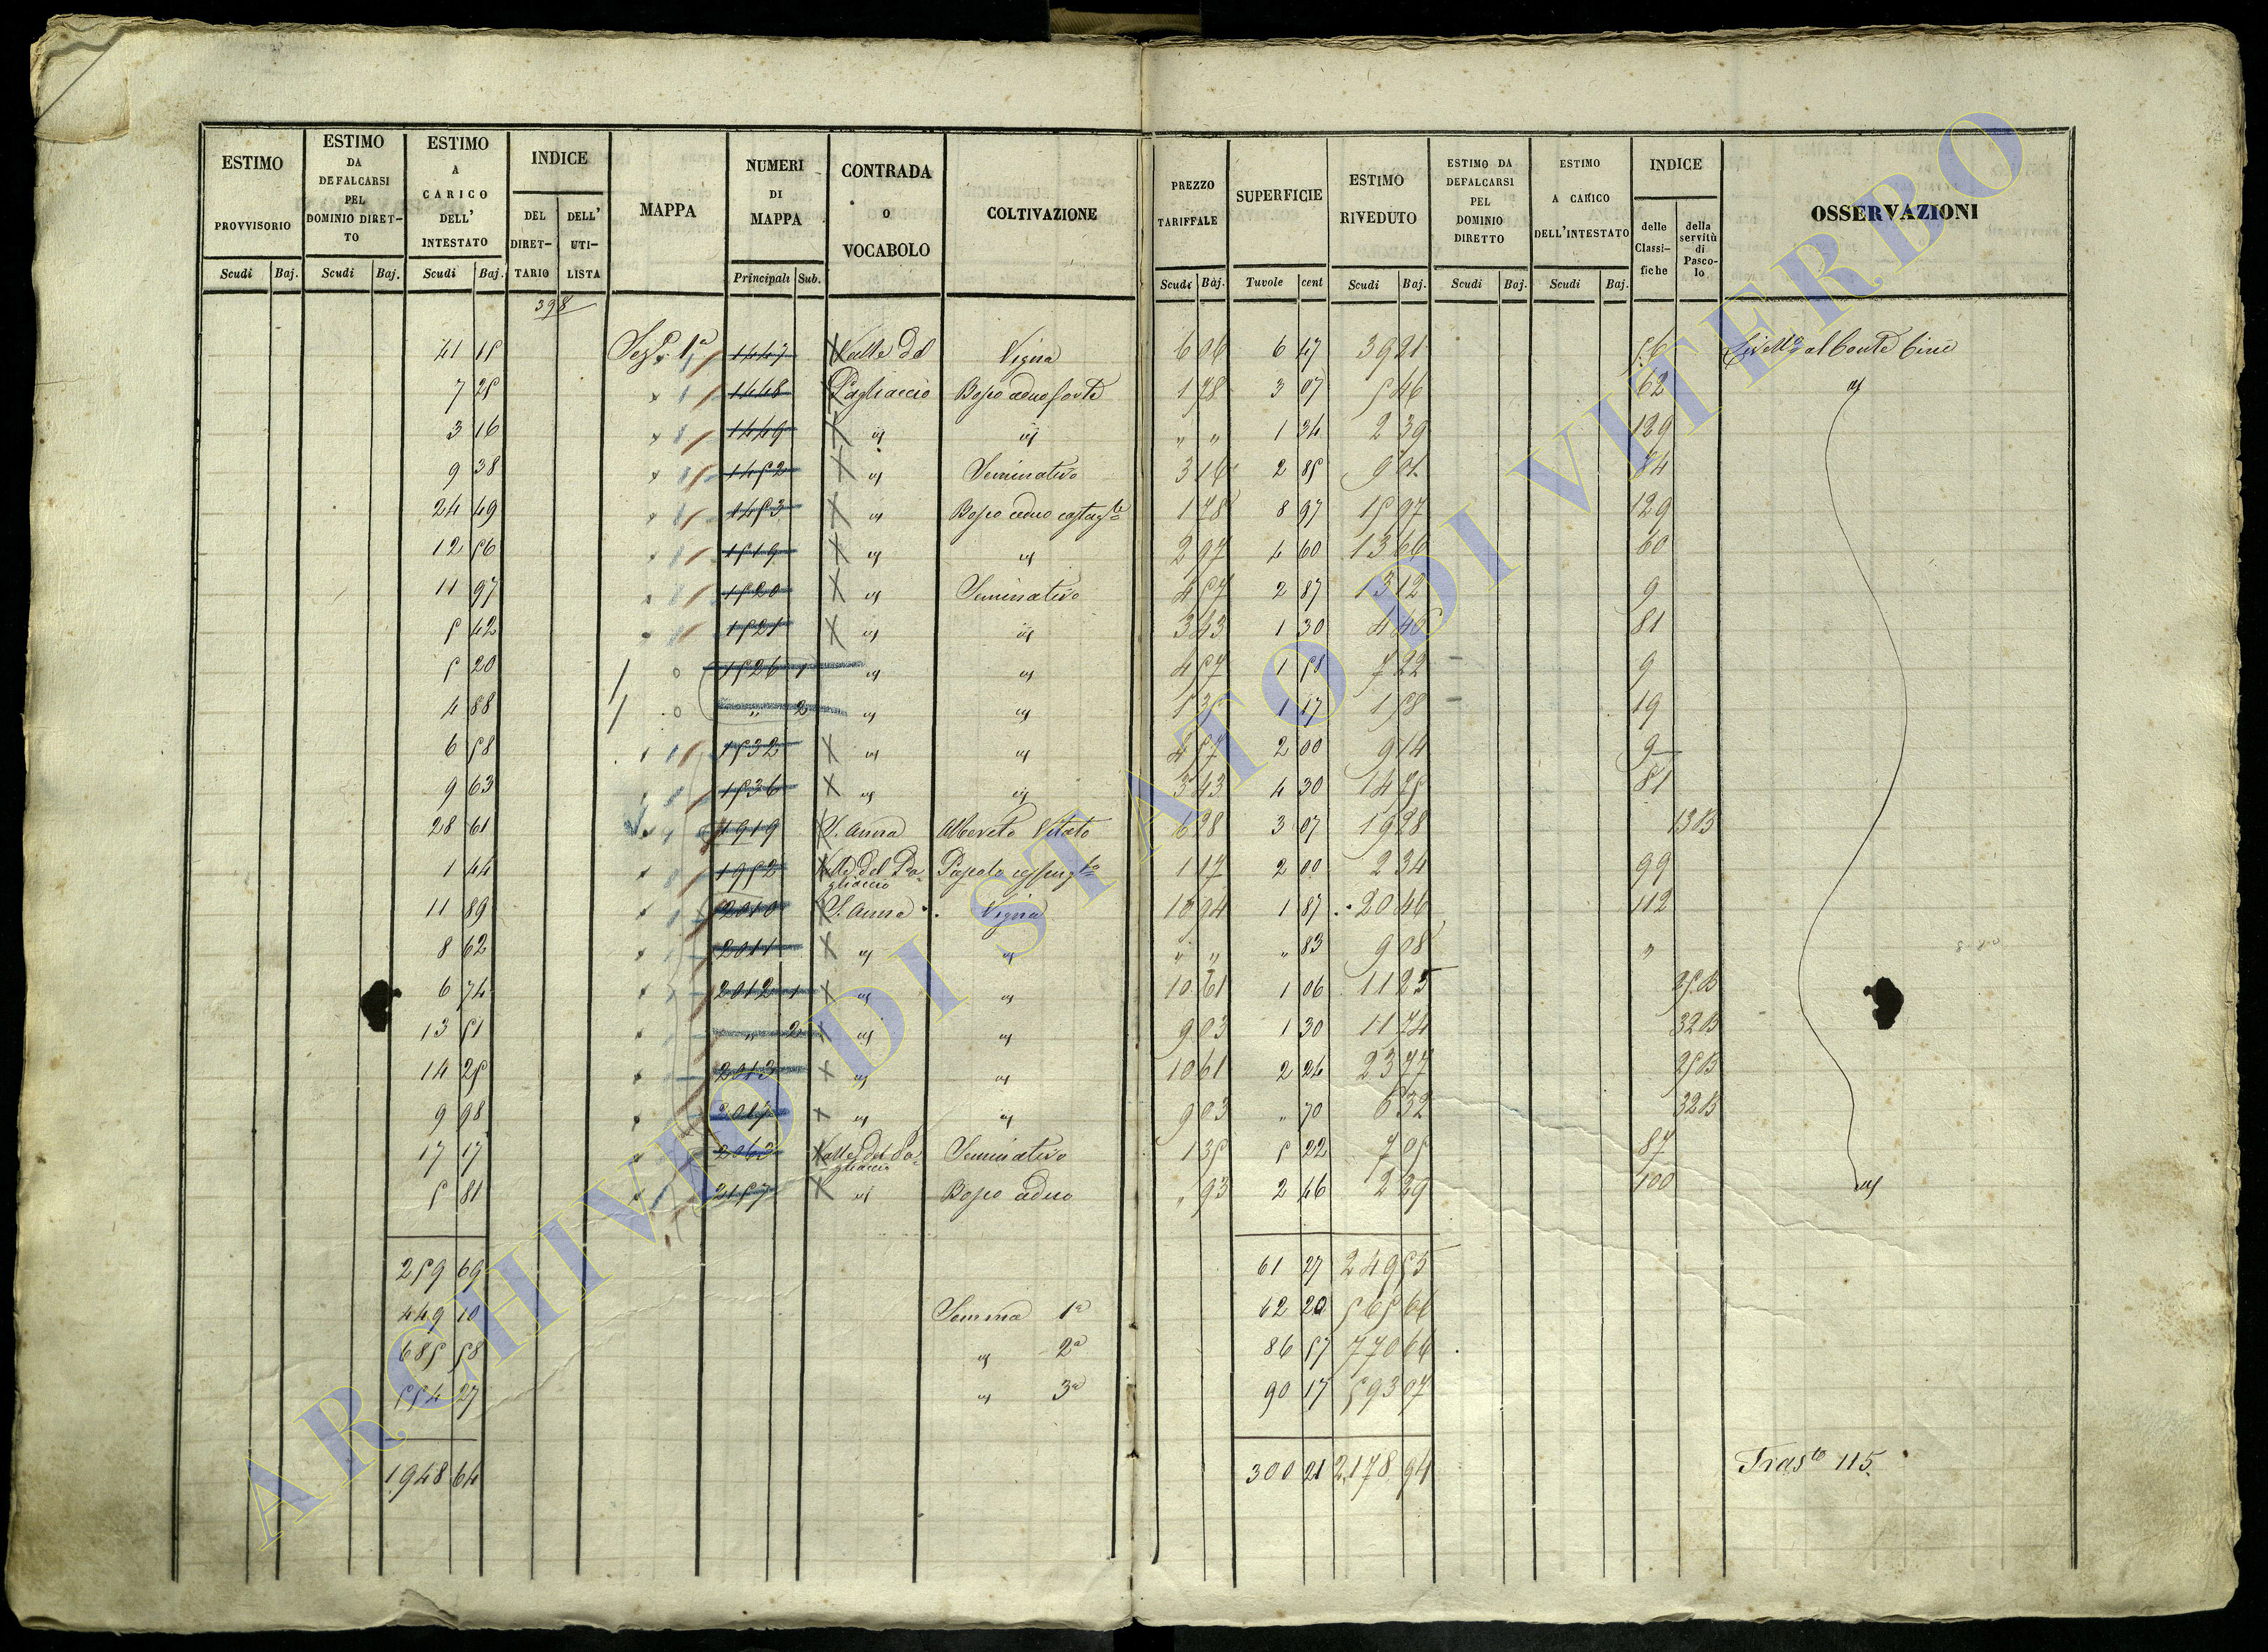 ESTIMO PROVVISORIO
ESTIMO DA DEFALCARSI PEL DOMINIO DIRET-TO
ESTIMO A CARICO DELL' INTESTATO
INDICE
DEL DIRET-TARIO
DELL' UTI-LISTA
MAPPA
NUMERI DI MAPPA
CONTRADA O VOCABOLO
COLTIVAZIONE
PREZZO TARIFFALE
SUPERFICIE
ESTIMO RIVEDUTO
ESTIMO DA DEFALCARSI PEL DOMINIO DIRETTO
ESTIMO A CARICO DELL'INTESTATO
INDICE
delle Classi-fiche
della servitù di Pasco-lo
OSSERVAZIONI
Scudi Baj. Scudi Baj. Scudi Baj. Principali Sub. Scudi Baj. Tuvole cent Scudi Baj. Scudi Baj. Scudi Baj.
398
41 15 1a 1447 Valle del Vigna 6 06 6 47 39 21 56
7 25 1448 Pagliaccio 1 78 3 07 5 46 62 "
3 16 1449 " " " " 1 34 2 39 129
9 38 1452 " Seminativo 3 16 2 85 9 01 84
24 49 1453 " 1 78 8 97 15 97 129
12 56 1519 " " 2 97 4 60 13 66 60
11 97 1520 " Seminativo 4 57 2 87 13 12 9
5 42 1521 " " 3 43 1 30 4 46 81
5 20 1526 1 " " 4 57 1 58 7 22 9
4 88 " 2 " " 1 35 1 17 1 58 19
6 58 1532 " " 4 57 2 00 9 14 9
9 63 1536 " " 3 43 4 30 14 75 81
28 61 1919 S. Anna Albereto Vitato 6 28 3 07 19 28 13 B
1 44 1952 Valle del Pa-gliaccio 1 17 2 00 2 34 99
11 89 2010 S. Anna Vigna 10 94 1 87 20 46 112
8 62 2011 " " " " " 83 9 08 "
6 74 2012 1 " " 10 61 1 06 11 25 25 B
13 51 " 2 " " 9 03 1 30 11 74 32 B
14 25 2013 " " 10 61 2 24 23 77 25 B
9 98 2017 " " 9 03 " 70 6 32 32 B
17 17 2063 Valle del Pa-gliaccio Seminativo 1 35 5 22 7 05 87
5 81 2157 " " 93 2 46 2 29 100 "
259 69 61 27 249 55
449 10 Somma 1a 62 20 565 66
685 58 " 2a 86 57 770 66
554 27 " 3a 90 17 593 07
1948 64 300 21 2178 94 Trasto 115.
ARCHIVIO DI STATO DI VITERBO